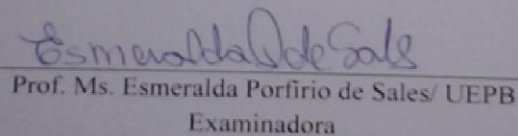 Esmeralda P de Sales
Prof. Ms. Esmeralda Porfirio de Sales/ UEPB
Examinadora